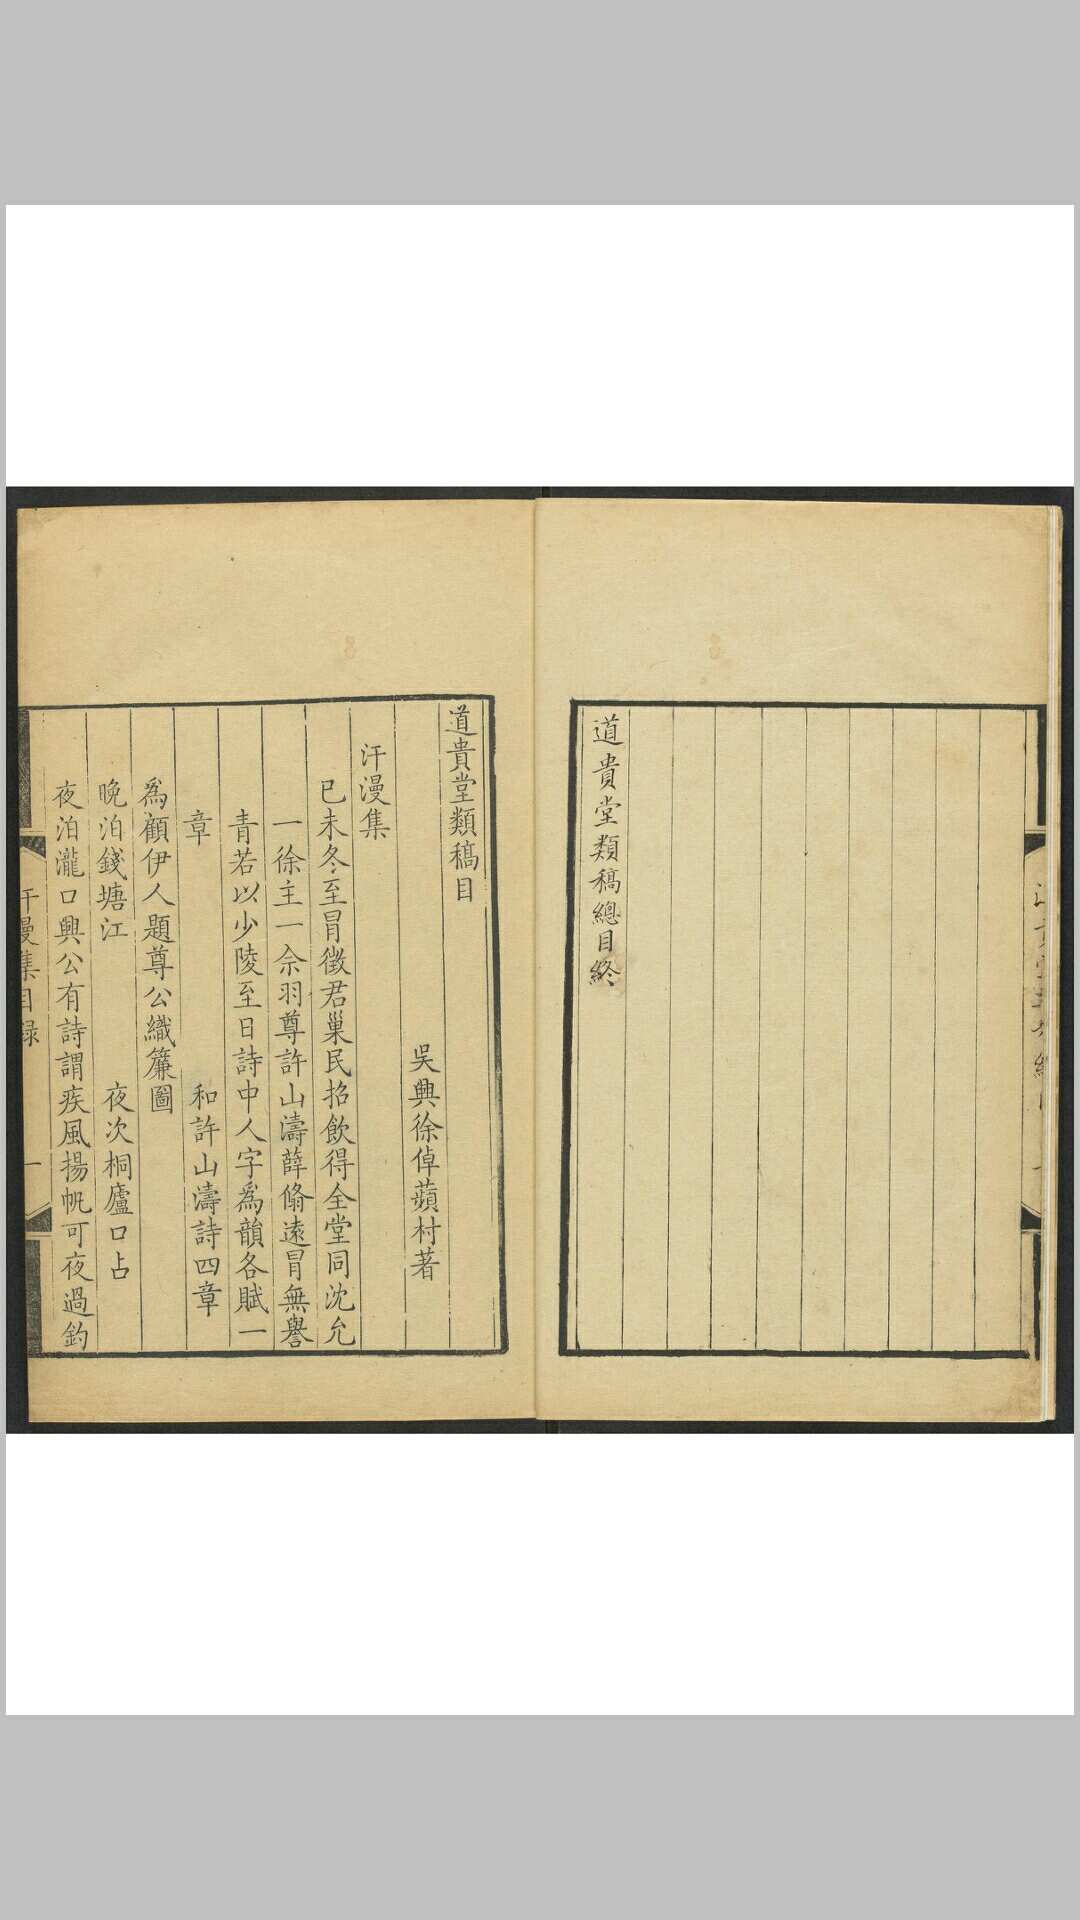 道貴堂類稿總目終
道貴堂類稿目
吳興徐倬蘋村著
汗漫集
已未冬至冒徵君巢民招飲得全堂同沈允
一徐主一佘羽尊許山濤薛翛遠冒無譽
青若以少陵至日詩中人字為韻各賦一
章
和許山濤詩四章
為顧伊人題尊公織簾圖
晚泊錢塘江
夜次桐廬口占
夜泊瀧口興公有詩謂疾風揚帆可夜過釣
汗漫集目錄
一